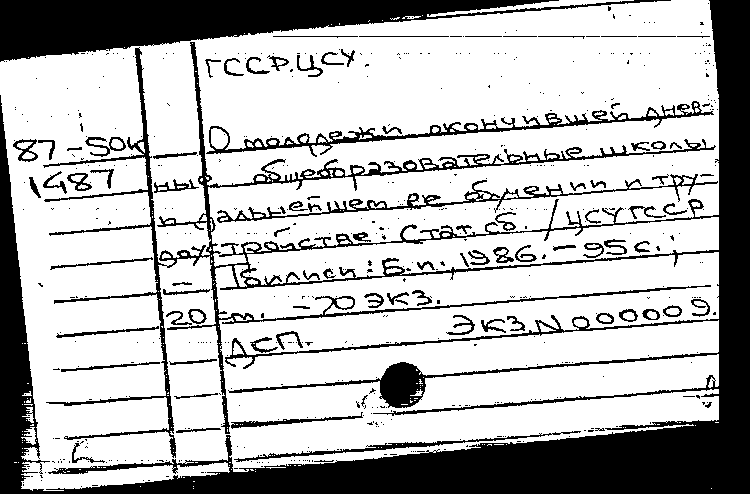 ГССР. ЦСУ.
87-50к О молодежи окончившей днев-
1487 ные общеобразовательные школы
и дальнейшем ее обучении и тру-
доустройстве: Стат. сб. / ЦСУ ГССР
- Тбилиси: Б.и., 1986. - 95 с.;
20 см. - 70 экз.
ДСП. ЭКЗ. N 000009.